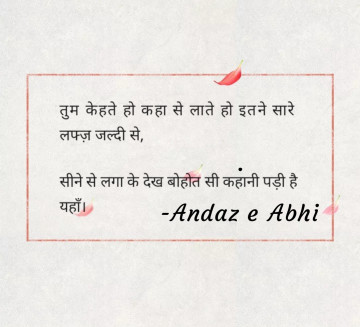 तुम केहते हो कहा से लाते हो इतने सारे
लफ्ज़ जल्दी से,
सीने से लगा के देख बोहोत सी कहानी पड़ी है
यहाँ।
-Andaz e Abhi